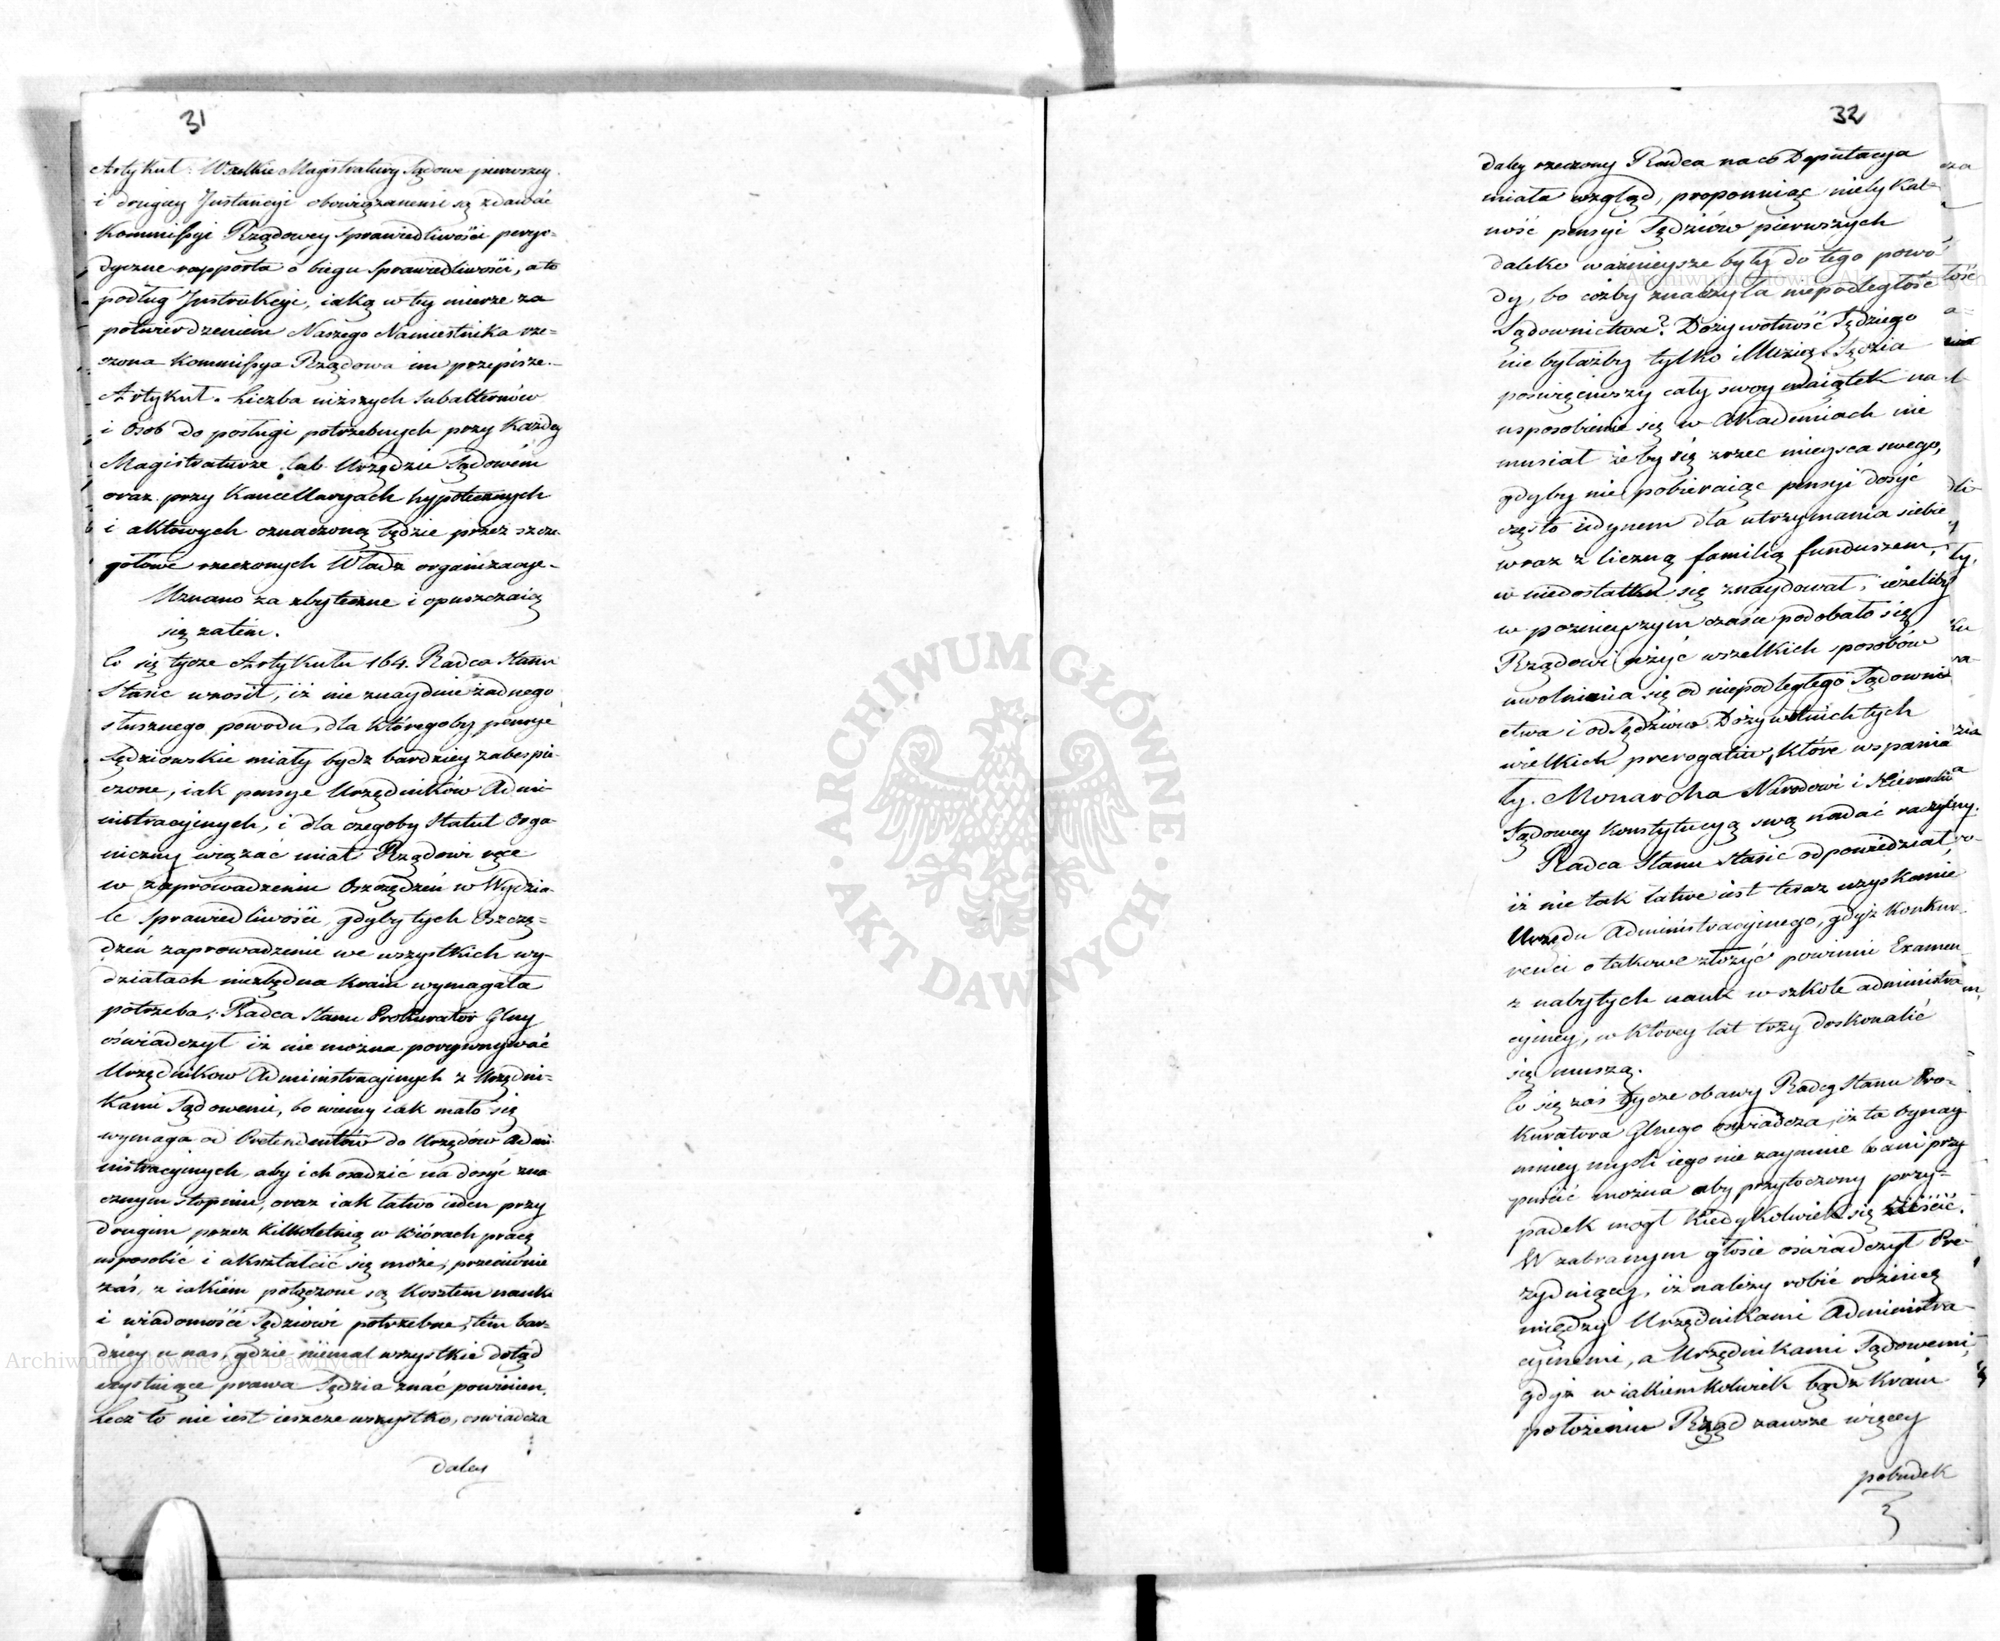 31
Artykuł: Wszelkie Magistratury Sądowe pierwszey
i drugiey Instancyi obowiązanemi są zdawać
Kommissyi Rządowey Sprawiedliwości peryo-
dyczne rapporta o biegu Sprawiedliwości, a to
podług Instrukcyi, iaką w tey mierze za
potwierdzeniem Naszego Namiestnika rze-
czona Kommissya Rządowa im przepisze.-
Artykuł. Liczba niższych Subalternów
i Osob do posługi potrzebnych przy każdey
Magistraturze lub Urzędzie Sądowém
oraz przy Kancellaryach hypotecznych
i aktowych oznaczoną będzie przez szcze-
gółowe rzeczonych Władz organizacye-
Uznano za zbyteczne i opuszczaią
się zatém.
Co się tycze Artykułu 164. Radca Stanu
Stasic wnosił, iż nie znayduie żadnego
słusznego powodu, dla któregoby pensye
Sędziowskie miały bydz bardziey zabespie-
czone, iak pensye Urzędników Admi-
nistracyinych, i dla czegoby Statut Orga-
niczny wiązać miał Rządowi ręce
w zaprowadzeniu Oszczędzeń w Wydzia-
le Sprawiedliwości, gdyby tych Oszczę-
dzeń zaprowadzenie we wszystkich wy-
działach niezbędna Kraiu wymagała
potrzeba; Radca Stanu Prokurator Glny
oświadczył iż nie można porównywać
Urzędników Administracyinych z Urzędni-
kami Sądowemi, bo wiemy iak mało się
wymaga od Pretendentów do Urzędów Admi-
nistracyinych, aby ich osadzić na dosyć zna-
cznym stopniu, oraz iak łatwo ieden przy
drugim przez kilkoletnią w Biórach pracę
usposobić i ukształcić się może, przeciwnie
zaś, z iakiem połączone są kosztem nauki
i wiadomości Sędziowi potrzebne, tém bar-
dziey u nas, gdzie niemal wszystkie dotąd
exystuiące prawa Sędzia znać powinien.
Lecz to nie iest ieszcze wszystko, oświadcza
daley
32
daley rzeczony Radca na co Deputacya
miała wzgląd, proponuiąc nietykal-
ność pensyi Sędziów pierwszych
daleko ważnieysze były do tego powo-
dy, bo cóżby znaczyła niepodległość
Sądownictwa? Dożywotność Sędziego
nie byłażby tylko Sędzia
poświęciwszy cały swoy maiątek na
usposobienie się w Akademiach nie
musiał żeby się zrzec mieysca swego,
gdyby nie pobieraiąc pensyi dosyć
często iedynem dla utrzymania siebie
wraz z liczną familią funduszem,
w niedostatku się znaydował, ieżeliby
w poznieyszym czasie podobało się
Rządowi użyć wszelkich sposobów
uwolnienia się od niepodległego Sądowni-
ctwa i od Sędziów Dożywotnich tych
wielkich prerogatiw, które wspania-
ły Monarcha Narodowi i Hierarchii
Sądowey Konstytucyą swą nadać raczył.
Radca Stanu Stasic odpowiedział,
iż nie tak łatwe iest teraz uzyskanie
Urzędu Administracyinego, gdyż konkur-
renci o takowe złożyć powinni Examen
z nabytych nauk w szkole administra-
cyiney, w którey lat trzy doskonalić
się muszą.
Co się zaś tycze obawy Radcy Stanu Pro-
kuratora Glnego oswiadcza, iż ta bynay-
mniey mysli iego nie zaymuie bani przy
puścić można aby przytoczony przy-
padek mogł kiedykolwiek się ziścić.
W zabranym głosie oświadczył Pre-
zyduiący, iż należy robić różnicę
między Urzędnikami Administra-
cyinemi, a Urzędnikami Sądowemi,
gdyż w iakiemkolwiek bądz kraiu
położeniu Rząd zawsze więcey
pobudek
ARCHIWUM GŁÓWNE
AKT DAWNYCH
Archiwum Główne Akt Dawnych
Archiwum Główne Akt Dawnych